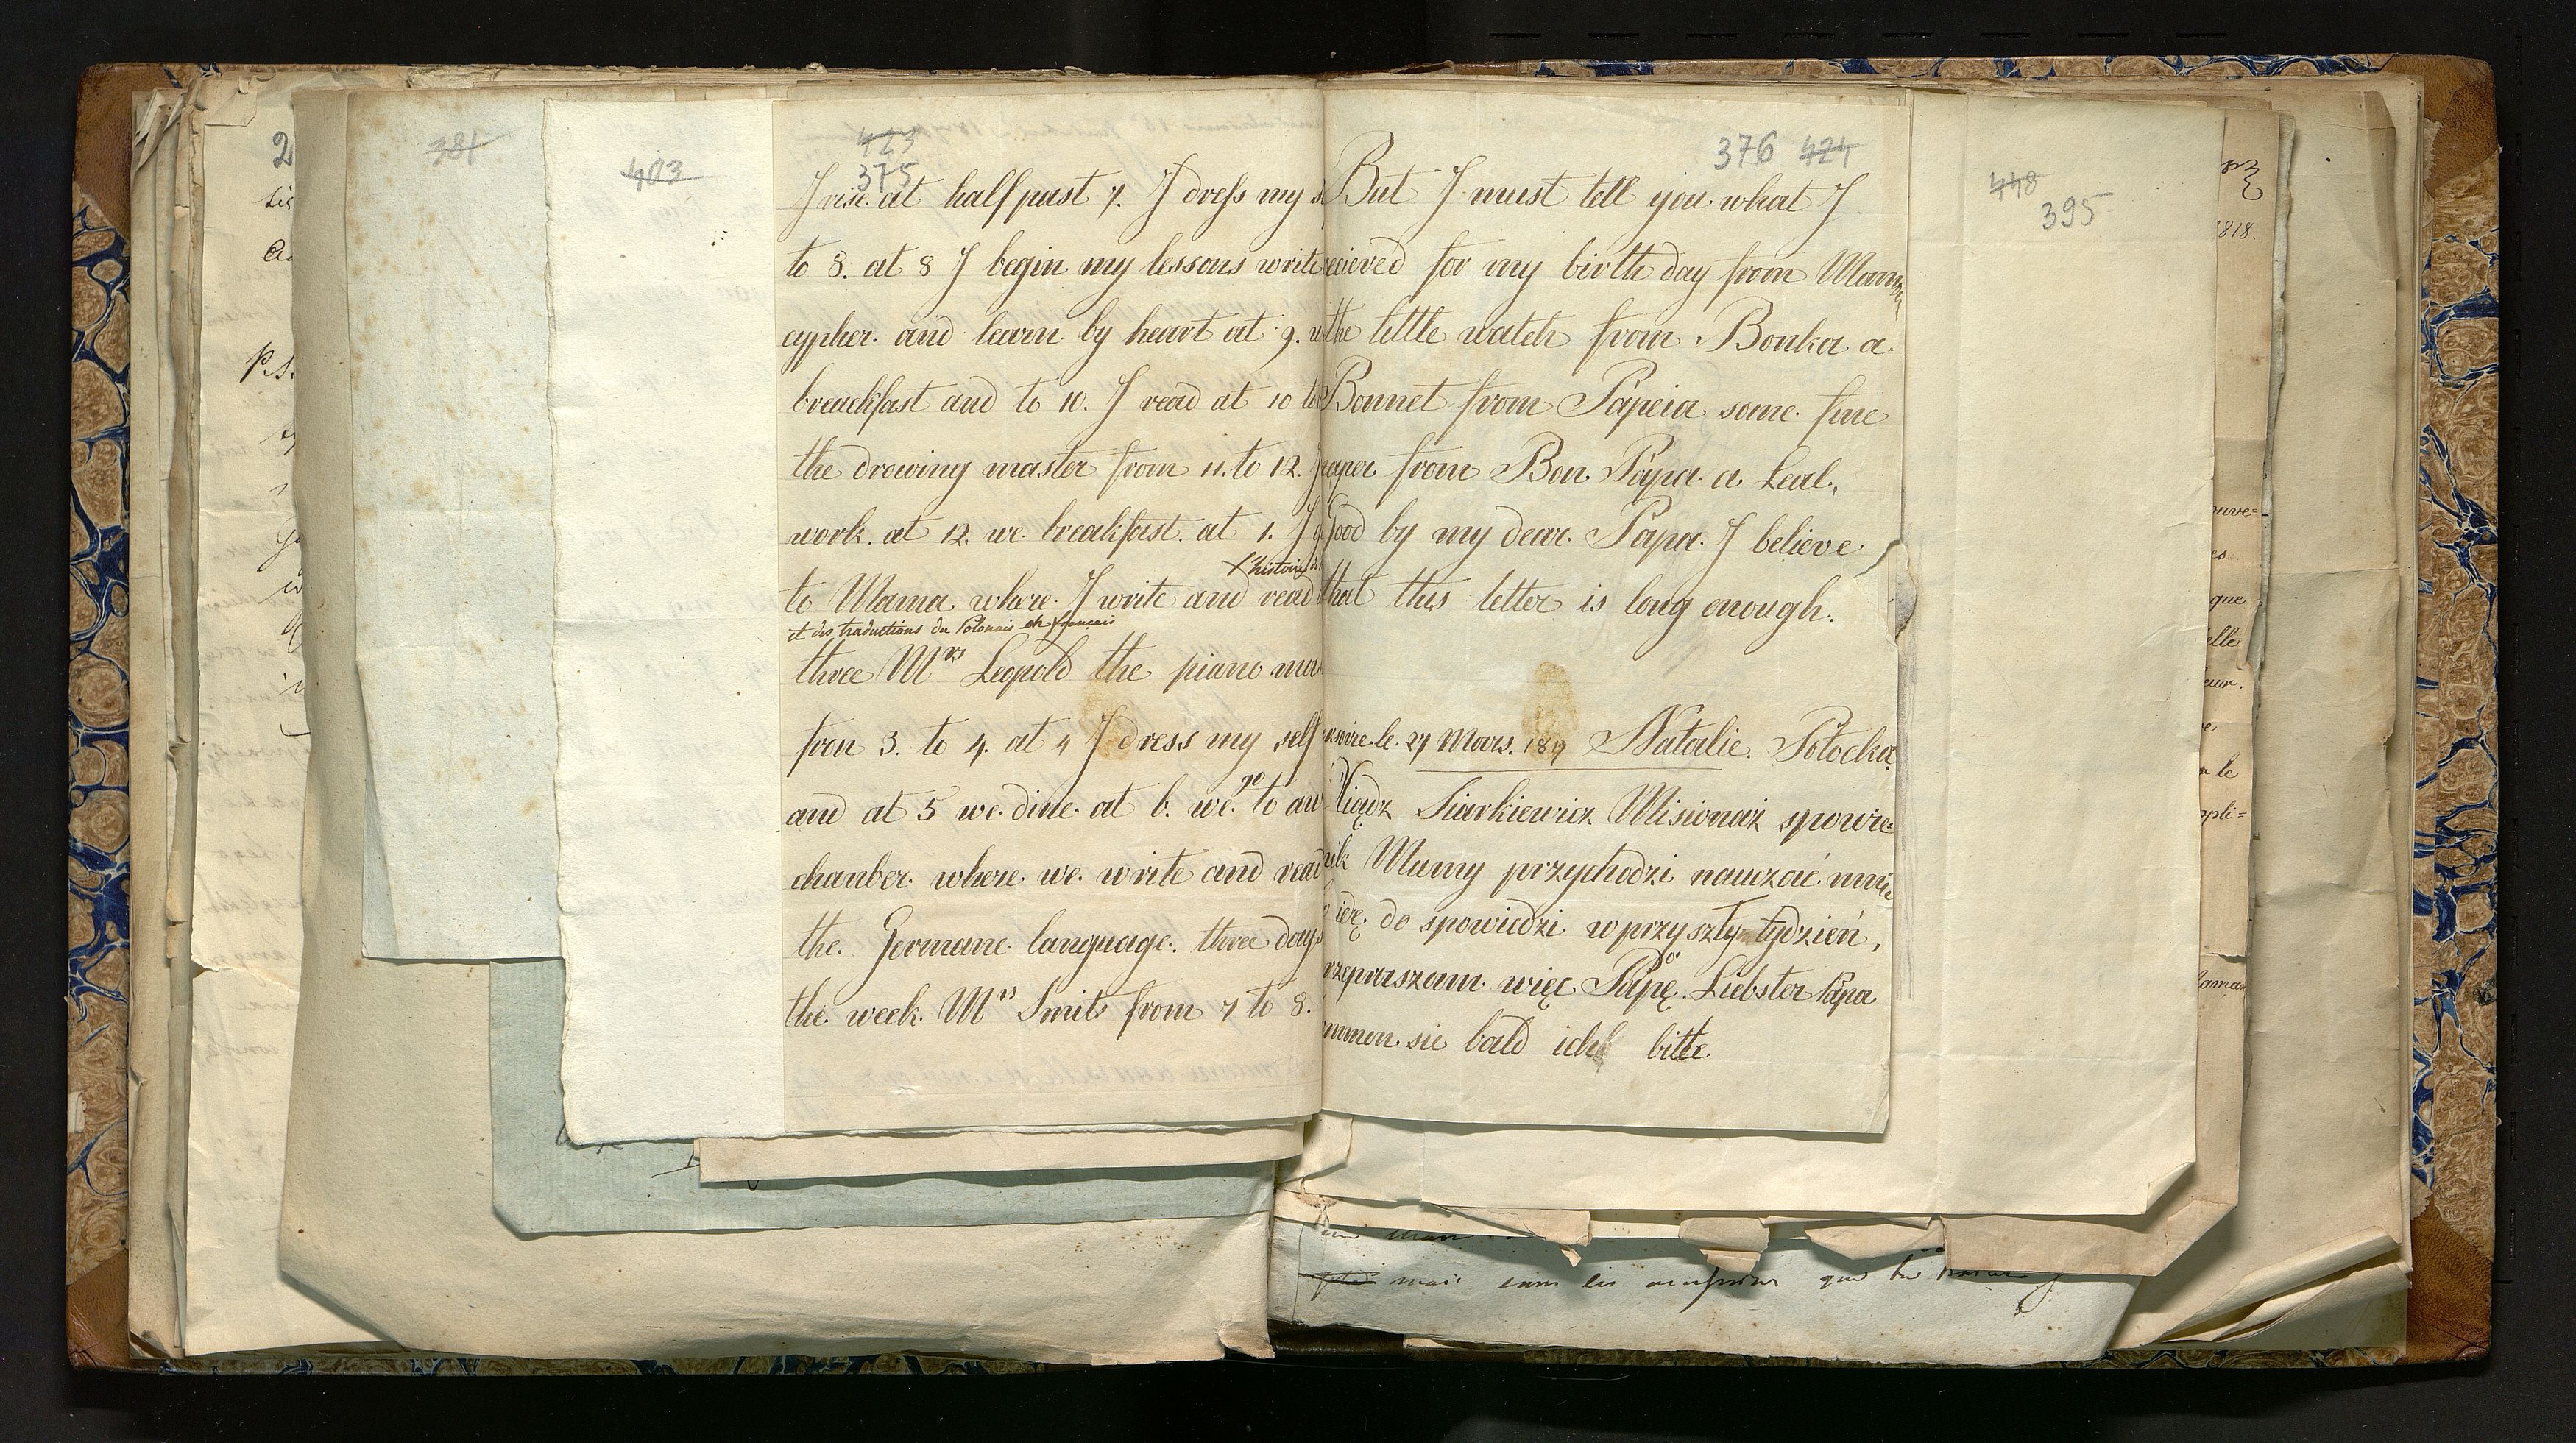 381
403
423
375
I rise at half past 7. I dress my s
to 8. at 8 I begin my lessons write
cypher. and learn by heart at 9. w
breackfast and to 10. I read at 10 to
the drowing master from 11. to 12. I
work. at 12. we breakfast. at 1. I g
+ histoire de
to Mama where I write and read
et des traductions du Polonais en français
three Mrs Leopold the piano ma
fron 3. to 4. at 4 I dress my self
and at 5 we dine at 6. we go to au
chanber where we write and read
the Germane language. three days
the week. Mrs Smits from 7 to 8.
376 424
But I must tell you what I
recieved for my birthday from Mama
the little watch from Bonka a
Bonnet from Papeia some fine
paper from Bon Papa a Leal,
Good by my dear Papa. I believe
that this letter is long enough.
rsovie le 27 Mars. 1817 Natalie Potocka
Xiądz Siarkiewicz Misionaż spowie=
nik Mamy przychodzi nauczać mnie
idę do spowiedzi w przyszły tydzień,
rzepraszam więc Papę. Liebster Papa
ommen sie bald ich bitte
448
395
2
P.S.
1818.
ouve=
es
que
elle
eur.
le
ppli=
aman
mais
que